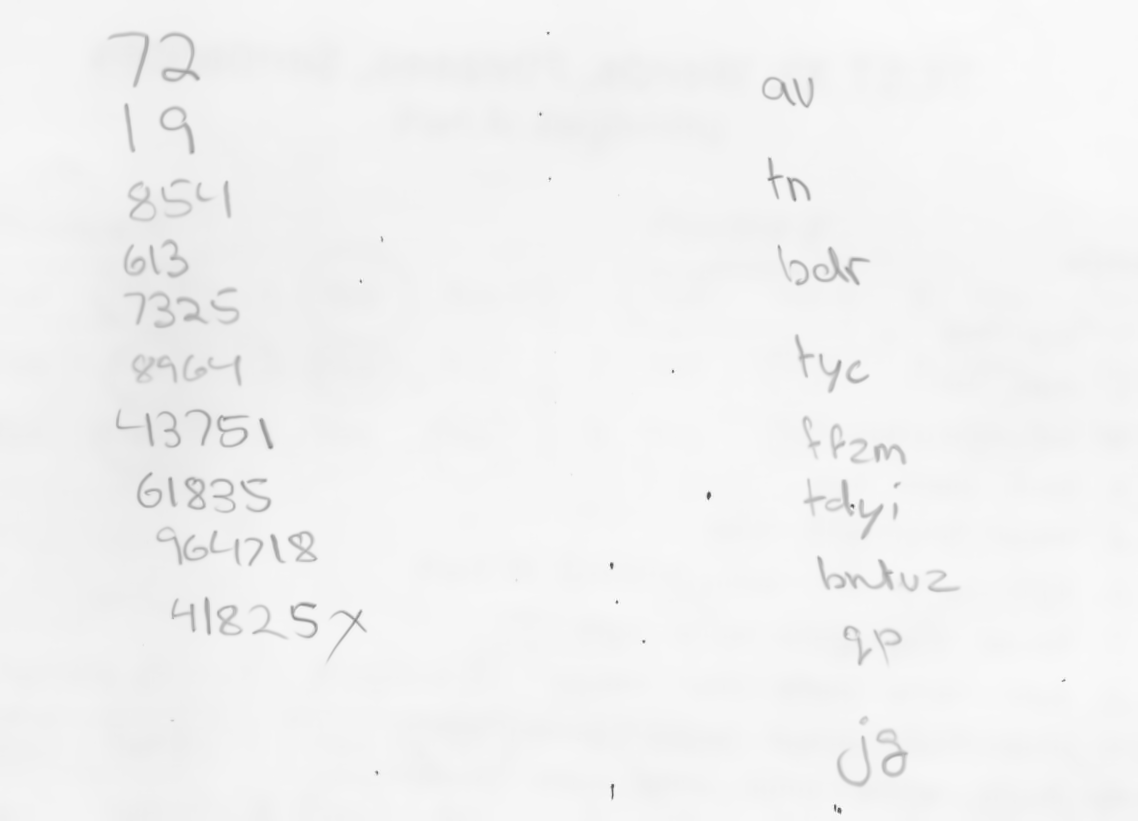 72
19
854
613
7325
8964
43751
61835
964718
41825x
av
tn
bdr
tyc
ffzm
tdyi
bntuz
qp
jg